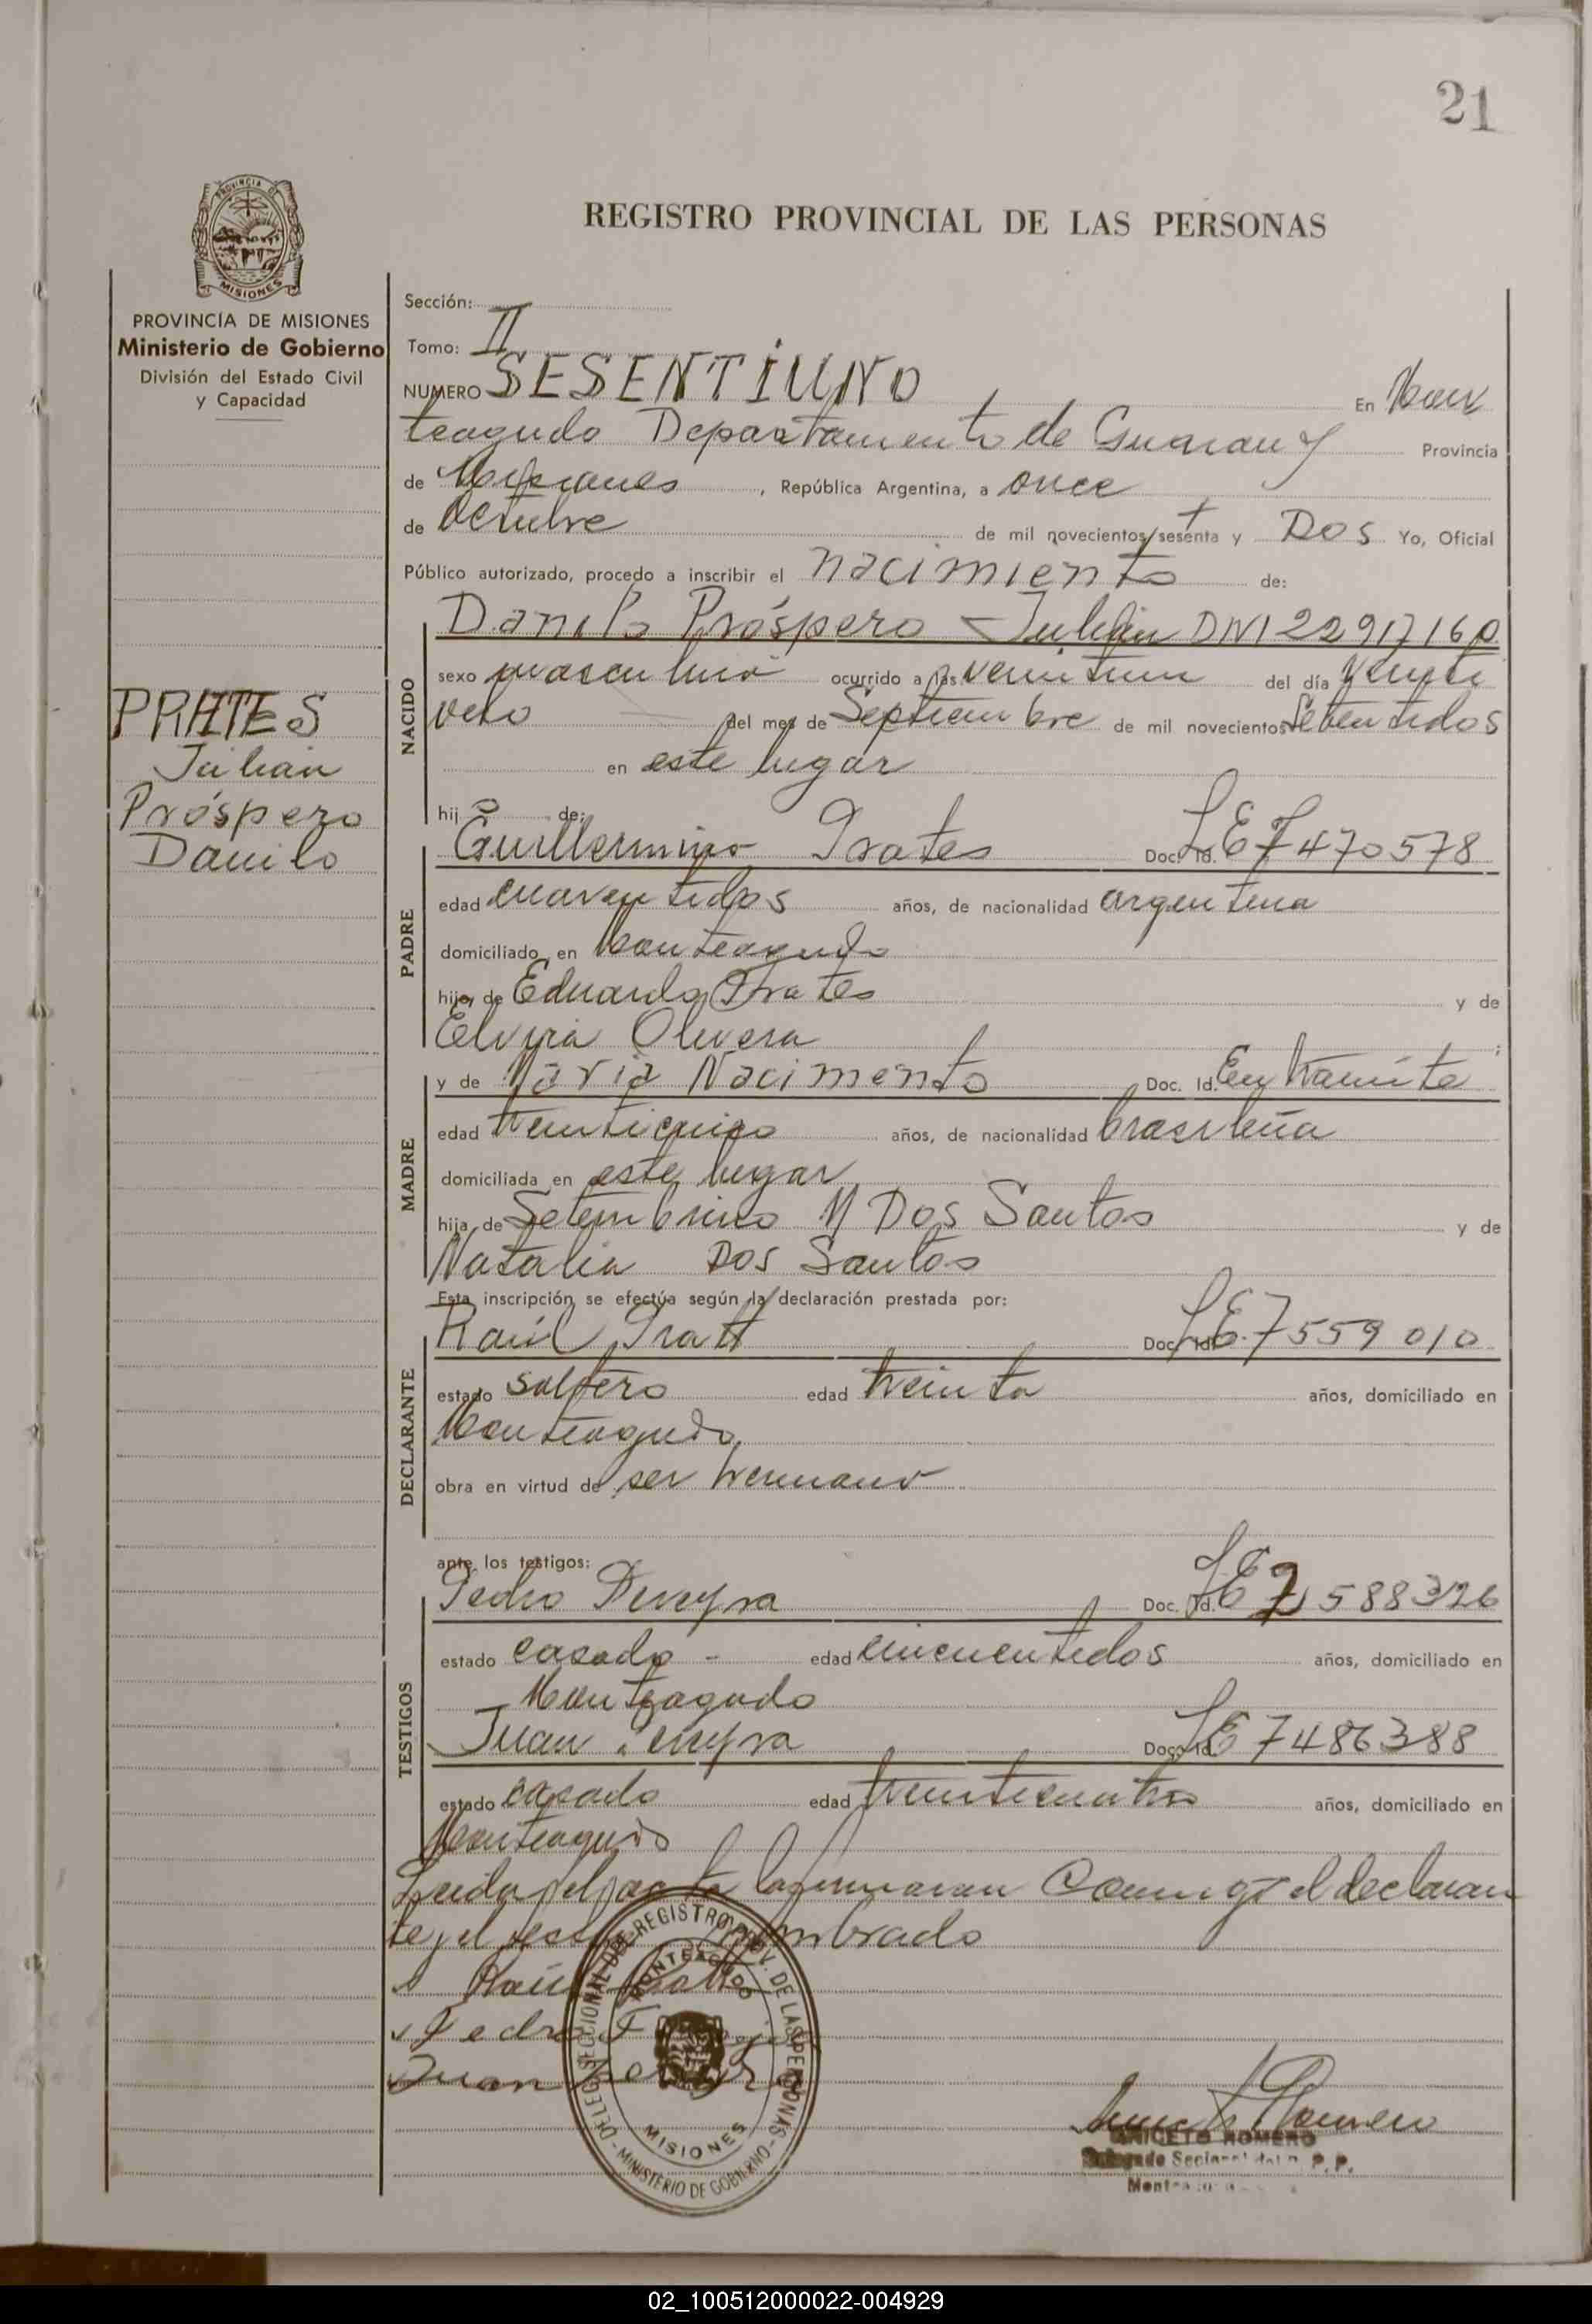 21
PROVINCIA DE
MISIONES
REGISTRO PROVINCIAL DE LAS PERSONAS
PROVINCIA DE MISIONES
Ministerio de Gobierno
División del Estado Civil
y Capacidad
PRATES
Julián
Próspero
Danilo
Sección:
Tomo: II
NUMERO SESENTIUNO En Mon
teagudo Departamento de Guarany Provincia
de Misiones, República Argentina, a once
de Octubre de mil novecientos sesenta y Dos Yo, Oficial
Público autorizado, procedo a inscribir el nacimiento de:
NACIDO
Danilo Próspero Julián DNI 22917160
sexo masculino ocurrido a las del día Veinti
del mes de Septiembre de mil novecientos Setentidos
en este lugar
hijo de:
PADRE
Guillermino Prates Doc. Id. LE 7470578
edad cuarentidos años, de nacionalidad argentina
domiciliado en Monteagudo
hijo de Eduardo Prates y de
Elvira Olivera
MADRE
y de Maria Nacimento Doc. Id. En tramite
edad treinticinco años, de nacionalidad brasileña
domiciliada en este lugar
hija de Setembrino N Dos Santos y de
Natalia Dos Santos
Esta inscripción se efectúa según la declaración prestada por:
DECLARANTE
Raúl Pratt Doc. Id. LE 7559010
estado soltero edad treinta años, domiciliado en
Monteagudo
obra en virtud de ser hermano
ante los testigos:
TESTIGOS
Pedro Doc. Id. LE 7588326
estado casado - edad cincuentidos años, domiciliado en
Monteagudo
Juan Doc. Id. LE 7486388
estado casado edad treinticuatro años, domiciliado en
Monteagudo
Leida el acta la firmaran Comigo el declaran
te y el nombrado
Raúl
Pedro
Juan
DELEG. SECCIONAL DEL REGISTRO PROV. DE LAS PERSONAS
MONTEAGUDO
MISIONES
- MINISTERIO DE GOBIERNO -
ANICETO ROMERO
Delegado Seccional
02_100512000022-004929